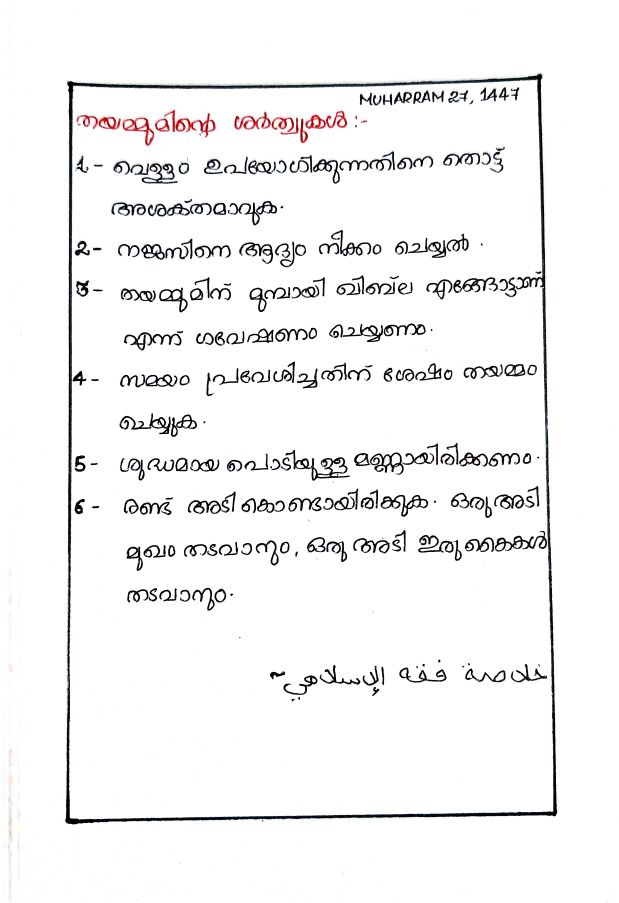 MUHARRAM 27, 1447
തയമ്മുമിന്റെ ശർത്വുകൾ :-
1 - വെള്ളം ഉപയോഗിക്കുന്നതിനെ തൊട്ട്
അശക്തമാവുക.
2 - നജസിനെ ആദ്യം നീക്കം ചെയ്യൽ .
3 - തയമ്മുമിന് മുമ്പായി ഖിബ്‌ല എങ്ങോട്ടാണ്
എന്ന് ഗവേഷണം ചെയ്യണം.
4 - സമയം പ്രവേശിച്ചതിന് ശേഷം തയമ്മം
ചെയ്യുക .
5 - ശുദ്ധമായ പൊടിയുള്ള മണ്ണായിരിക്കണം .
6 - രണ്ട് അടി കൊണ്ടായിരിക്കുക . ഒരു അടി
മുഖം തടവാനും, ഒരു അടി ഇരു കൈകൾ
തടവാനും.
خلاصة فقه الإسلامي~